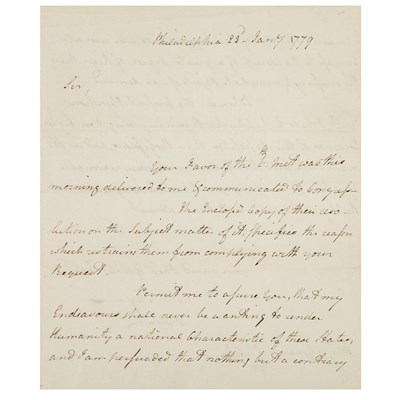 Philadelphia 23d. Jany 1779
Sir
Your Favor of the inst was this
morning delivered to me & communicated to Congress
The Enclosed Copy of their reso
lution on the Subject matter of it specifies the reason
which restrains them from complying with your
Request.
Permit me to assure You, that my
Endeavours shall never be wanting to render
Humanity a national Characteristic of these States,
and I am persuaded that nothing but a contrary